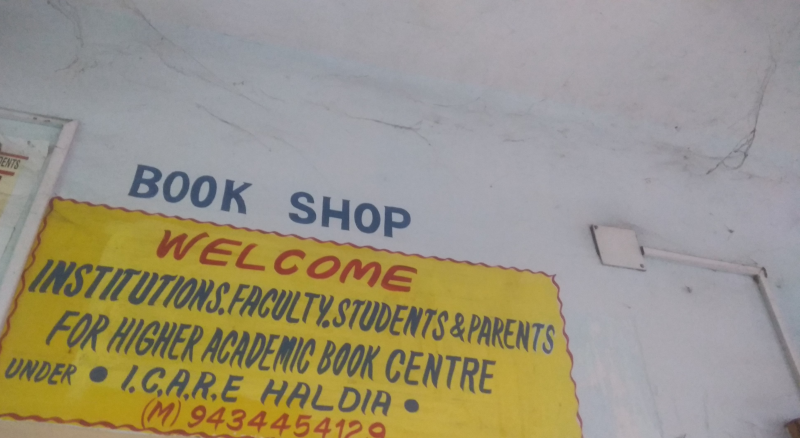 DENTS
BOOK SHOP
WELCOME
INSTITUTIONS.FACULTY.STUDENTS & PARENTS
FOR HIGHER ACADEMIC BOOK CENTRE
UNDER • I.C.A.R.E HALDIA •
(M) 9434454129